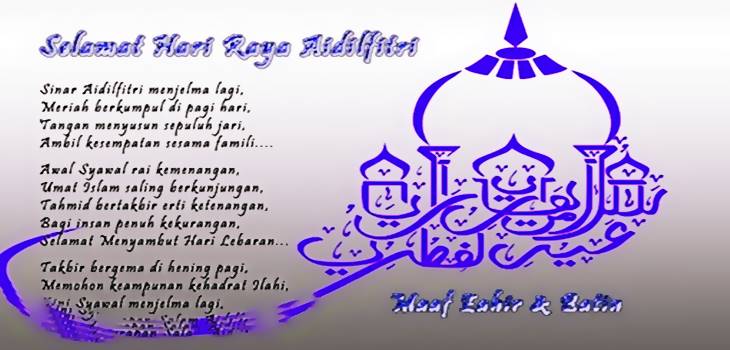 Selamat Hari Raya Aidilfitri
Sinar Aidilfitri menjelma lagi,
Meriah berkumpul di pagi hari,
Tangan menyusun sepuluh jari,
Ambil kesempatan sesama famili....
Awal Syawal rai kemenangan,
Umat Islam saling berkunjungan,
Tahmid bertakbir erti ketenangan,
Bagi insan penuh kekurangan,
Selamat Menyambut Hari Lebaran...
Takbir bergema di hening pagi,
Memohon keampunan kehadrat Ilahi,
Syawal menjelma lagi,
سلامت هاري راي
عيد الفطري
Maaf Zahir & Batin